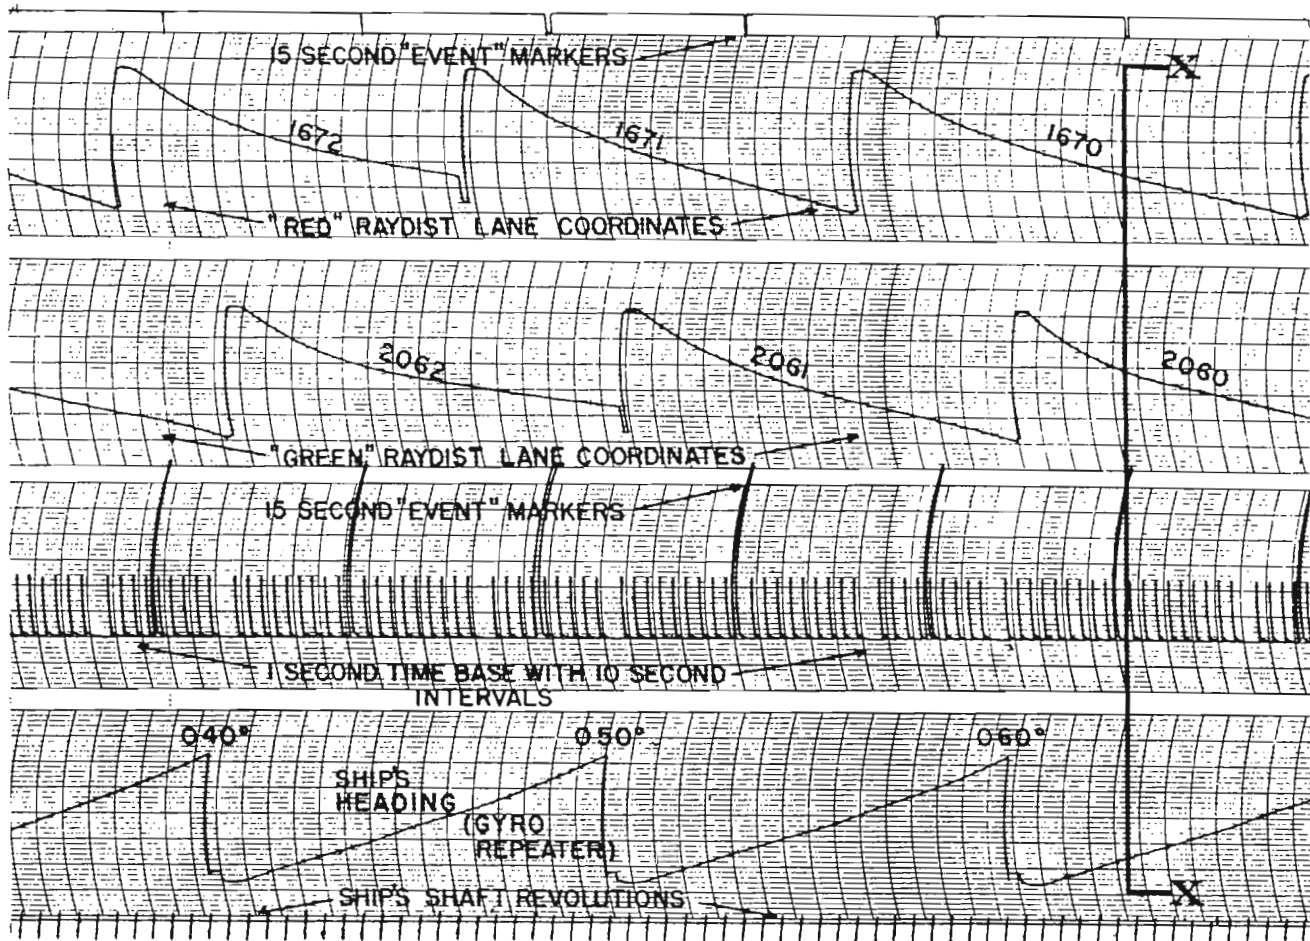 15 SECOND "EVENT" MARKERS
X
1672
1671
1670
"RED" RAYDIST LANE COORDINATES
2062
2061
2060
"GREEN" RAYDIST LANE COORDINATES
15 SECOND "EVENT" MARKERS
1 SECOND TIME BASE WITH 10 SECOND
INTERVALS
040°
050°
060°
SHIP'S
HEADING
(GYRO
REPEATER)
X
SHIP'S SHAFT REVOLUTIONS